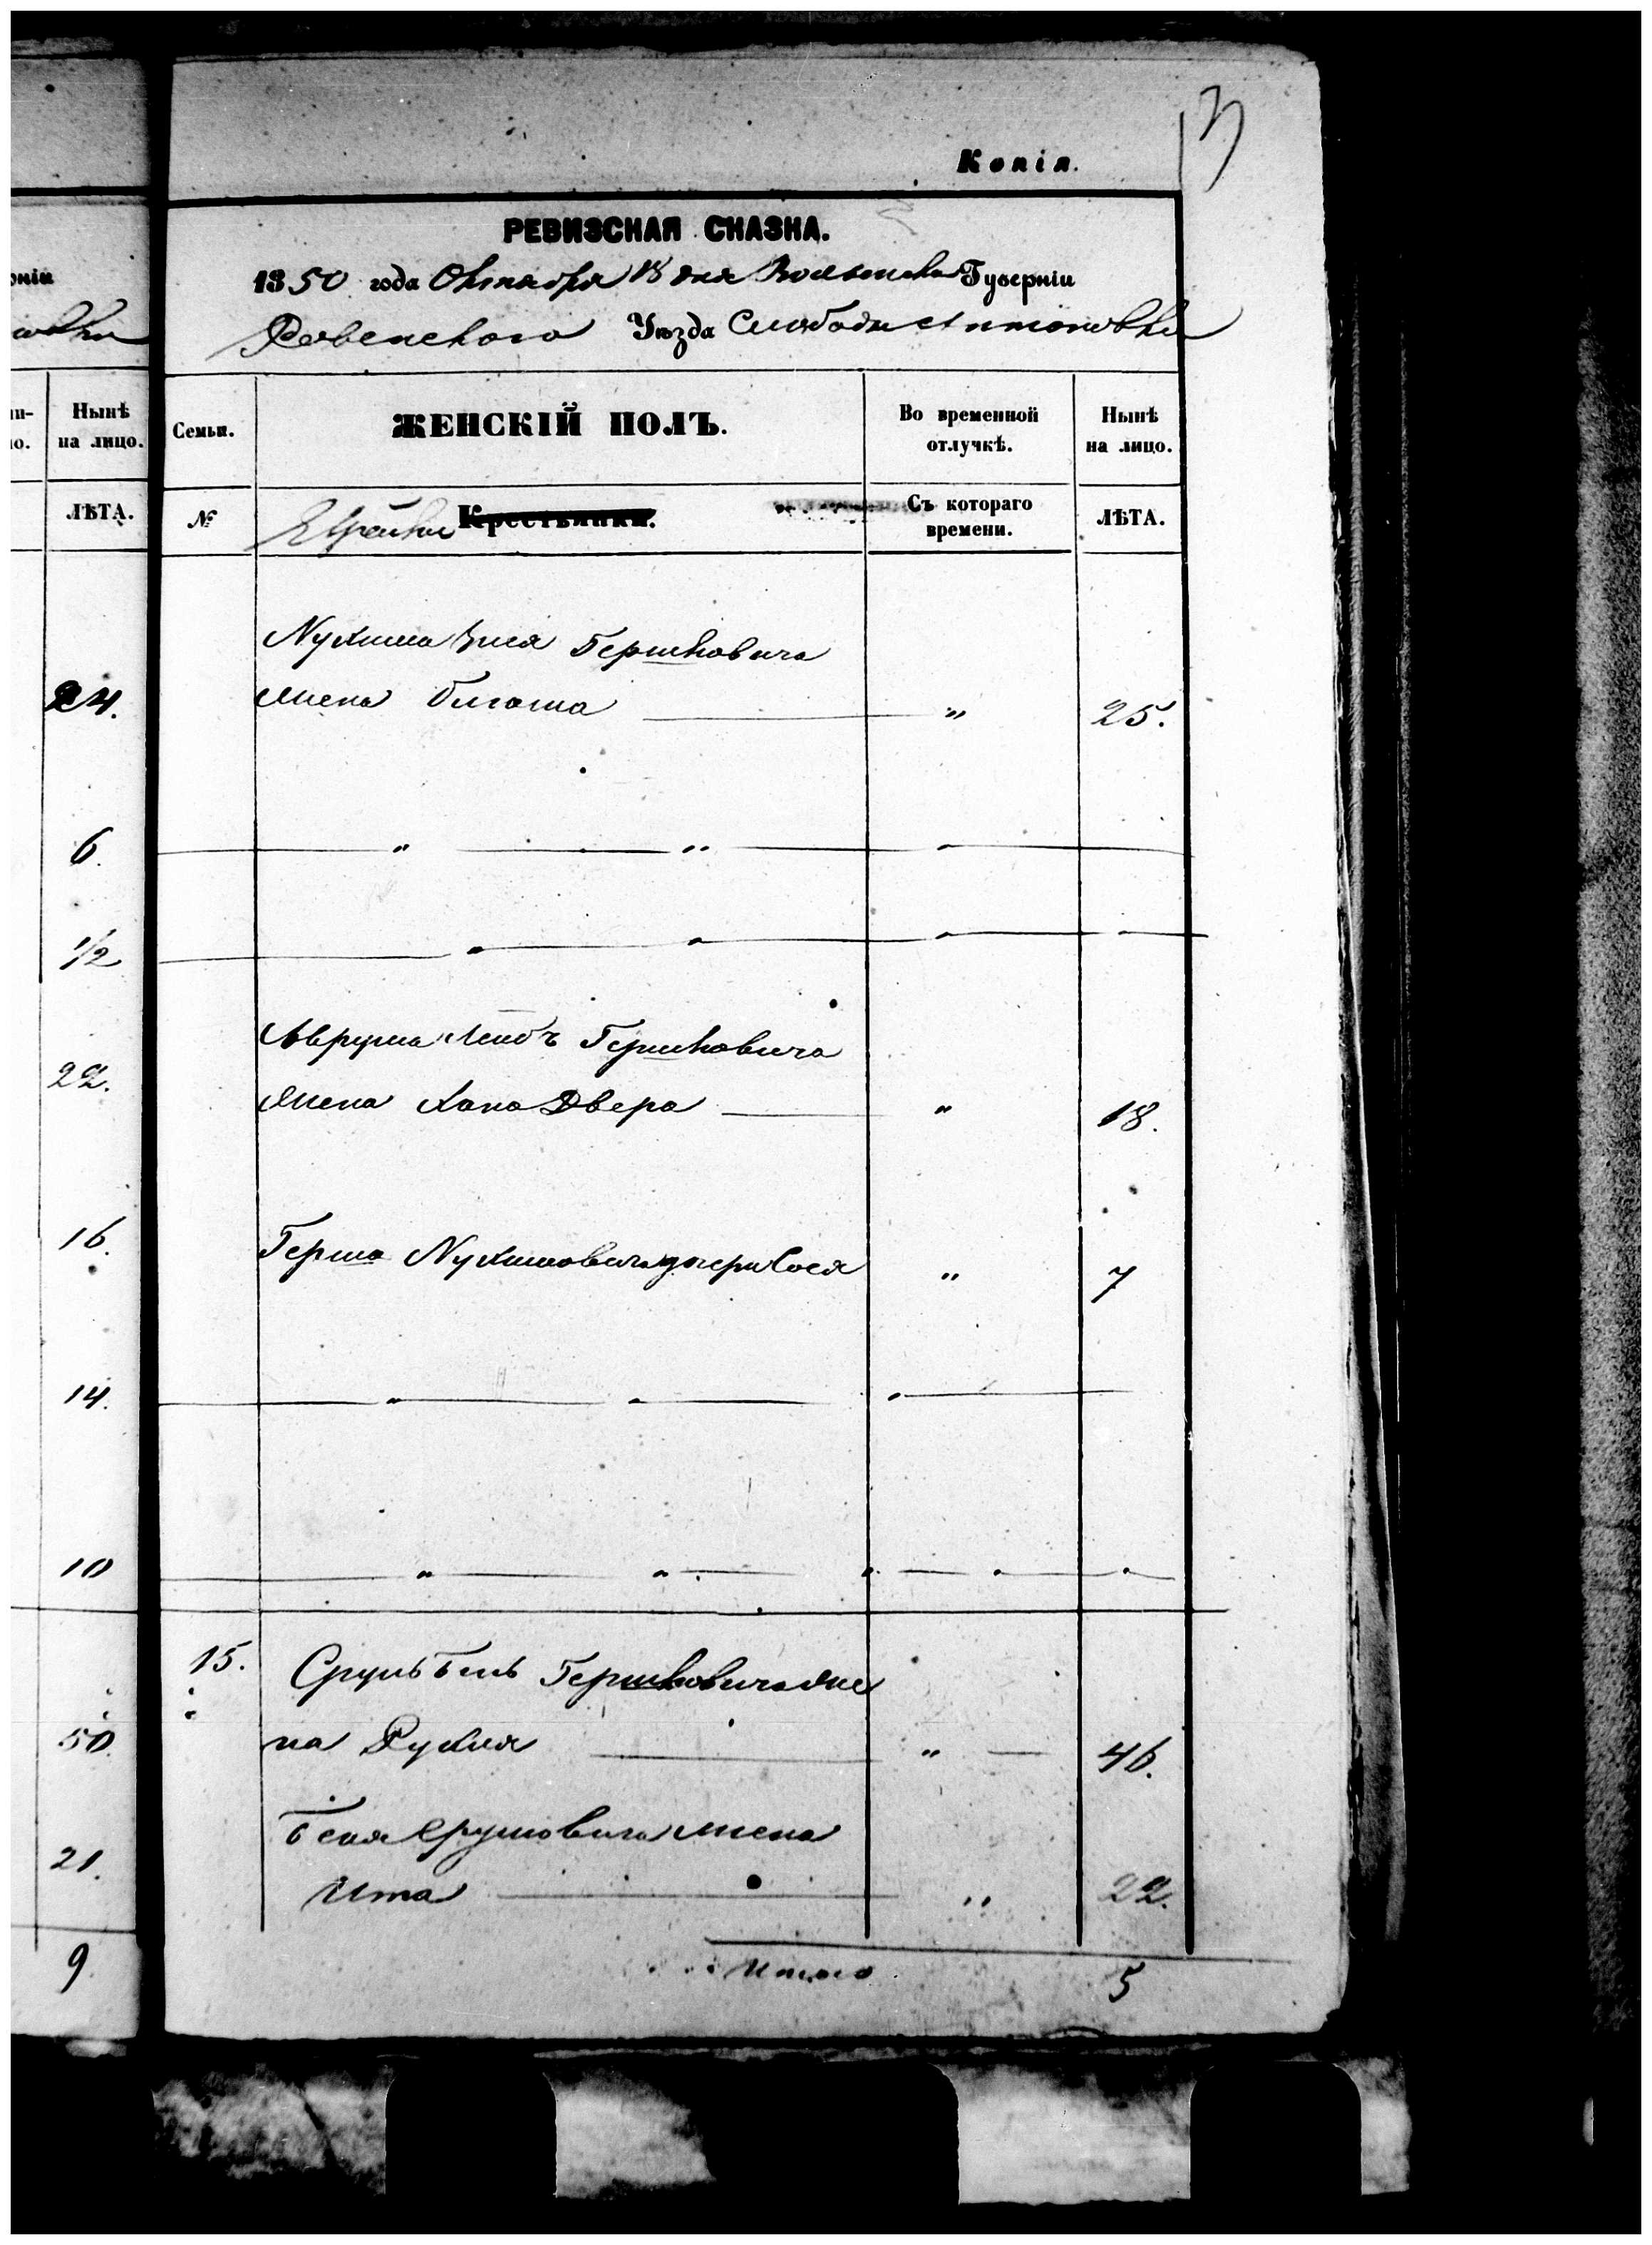 13
Копія.
РЕВИЗСКАЯ СКАЗКА.
1850 года Октября 18 дня Волынской Губерніи
Ровенского Уѣзда Слободы Антоновки
ніи
овки
Нынѣ на лицо.
ЛѢТА.
Семьи.
ЖЕНСКІЙ ПОЛЪ.
Во временной отлучкѣ.
Нынѣ на лицо.
№
Еврейки Крестьянки.
Съ котораго времени.
ЛѢТА.
Нухима Зися Гершковича
24. жена " 25.
6. " " "
1/2 " " "
Аврума Лейбъ Гершковича
22. жена Хана Двера " 18.
16. Герша Нухимовича дочери Сося " 7
14. " " "
10 " " " " "
15. Сруль Бень Гершковича же
50. на Рухля " 46.
Беня Срулевича жена
21. Ита " 22.
9 Итого 5